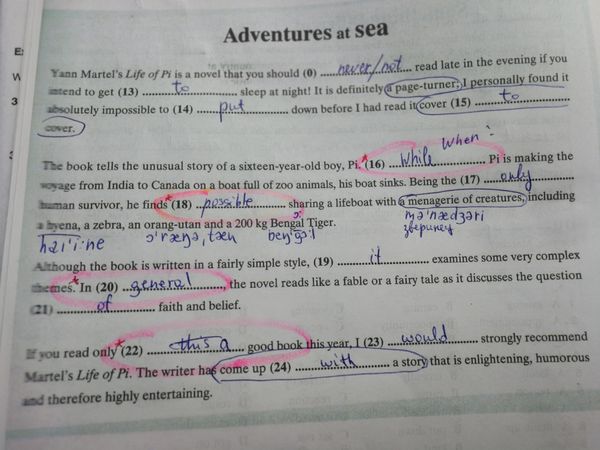 Adventures at sea
Yann Martel's Life of Pi is a novel that you should (0) never/not read late in the evening if you
intend to get (13) to sleep at night! It is definitely a page-turner; I personally found it
absolutely impossible to (14) put down before I had read it cover (15) to
cover.
when:
The book tells the unusual story of a sixteen-year-old boy, Pi. (16) while Pi is making the
voyage from India to Canada on a boat full of zoo animals, his boat sinks. Being the (17) only
human survivor, he finds (18) possible sharing a lifeboat with a menagerie of creatures, including
a hyena, a zebra, an orang-utan and a 200 kg Bengal Tiger.
mə'nædʒəri
зверинец
Although the book is written in a fairly simple style, (19) it examines some very complex
themes. In (20) general, the novel reads like a fable or a fairy tale as it discusses the question
(21) of faith and belief.
If you read only (22) this a good book this year, I (23) would strongly recommend
Martel's Life of Pi. The writer has come up (24) with a story that is enlightening, humorous
and therefore highly entertaining.